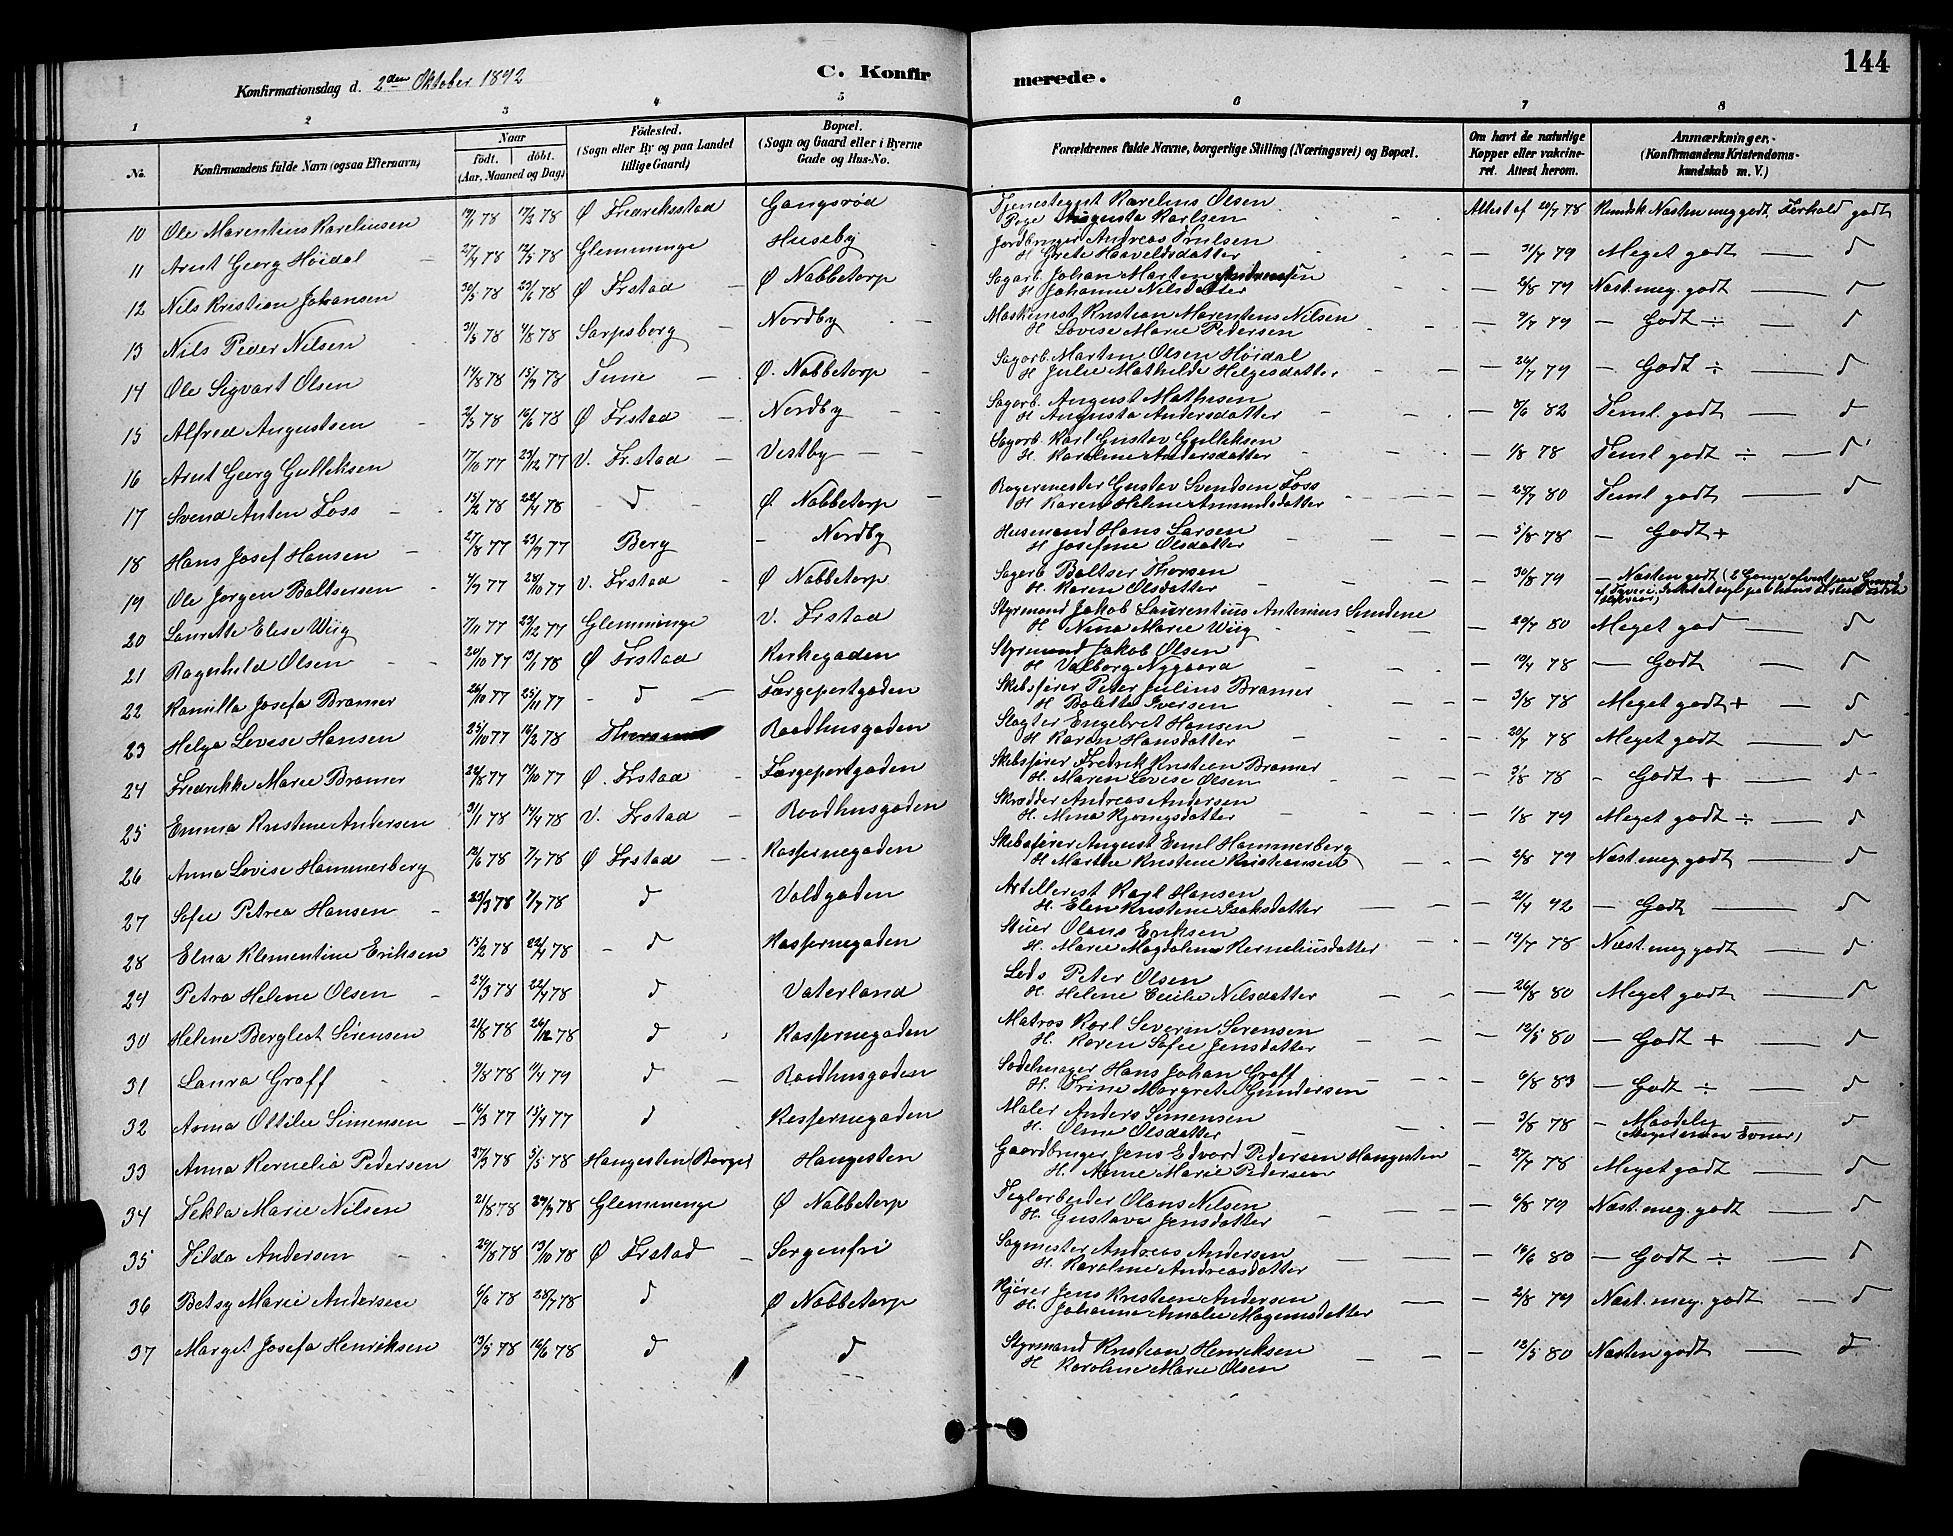 144
Konfirmationsdag d. 2den Oktober 1892
C. Konfirmerede.
1 2 3 4 5 6 7 8
No. Konfirmandens fulde Navn (ogsaa Efternavn) Naar født. døbt. (Aar, Maaned og Dag) Fødested. (Sogn eller By og paa Landet tillige Gaard) Bopæl. (Sogn og Gaard eller i Byerne Gade og Hus-No. Forældrenes fulde Navne, borgerlige Stilling (Næringsvei) og Bopæl. Om havt de naturlige Kopper eller vakcineret. Attest herom. Anmærkninger. (Konfirmandens Kristendomskundskab m. V.)
10 Ole Marentius Karelinsen 78 78 Ø Fredriksstad Gangsrød Tjenestegut Karelius Olsen
Pige Augusta Karlsen Attest af 20/7 78 Kundsk. Næsten meg godt, Forhold godt
11 Arnt Georg Høidal 27/4 78 12/5 78 Glemminge Huseby Jordbruger Andreas Trulsen
H Grete Haavelsdatter 31/7 79 Meget godt — d
12 Nils Kristian Johansen 30/5 78 23/6 78 Ø Frstad Ø Nabbetorp Sagarb. Johan Marten Andreasen
H Johanne Nilsdatter 2/8 79 Næst. meg. godt — d
13 Nils Peder Nilsen 31/5 78 4/8 78 Sarpsborg Nordby Maskinest Kristian Marentius Nilsen
H. Lovise Marie Pedersen 9/7 79 — Godt ÷ — d
14 Ole Sigvart Olsen 14/8 78 15/9 78 Tune Ø. Nabbetorp Sagarb. Marten Olsen Høidal
H Julie Mathilde Helgesdatter 26/7 79 — Godt ÷ — d
15 Alfred Augustsen 2/5 78 16/6 78 Ø Frstad Nordby Sagarb. August Mathisen
H Augusta Andersdatter 8/6 82 Teml. godt — d
16 Arnt Georg Gulleksen 17/10 77 23/12 77 V. Frstad Vestby Sagarb Karl Gustav Gulleksen
H. Karoline Andersdatter 1/8 78 Teml godt ÷ — d
17 Svend Anton Foss 15/2 78 22/4 78 d Ø. Nabbetorp Bagermester Gustav Svendsen Foss
H Karen Helene Amundsdatter 25/7 80 Teml godt — d
18 Hans Josef Hansen 27/8 77 23/9 77 Berg Nordby Husmand Hans Larsen
H. Josefine Olsdatter 5/8 78 — Godt +
19 Ole Jørgen Baltsersen 4/9 77 28/10 77 V. Frstad Ø Nabbetorp Sagarb Baltser Thorsen
H Karen Olsdatter 30/8 79 — Næsten godt (2 Gange afvist paa Grund af
20 Laurette Elise Wiig 7/11 77 23/12 77 Glemminge V. Frstad Styrmand Jakob Laurentius Antonius Sundene
H. Nina Marie Wiig 20/7 80 Meget god — d
21 Ragnhild Olsen 20/10 77 13/1 78 Ø Frstad Kirkegaden Styrmand Jakob Olsen
H Valborg Nygaard 10/4 78 — Godt — d
22 Kamilla Josefa Bramer 26/10 77 25/11 77 d Færgeportgaden Skibsfører Peter Julius Bramer
H Bolette Iversen 3/8 78 Meget godt + — d
23 Helga Lovise Hansen 25/10 77 16/2 78 Raadhusgaden Slagter Engebret Hansen
H Karen Hansdatter 20/7 78 Meget godt — d
24 Fredrikke Marie Bramer 26/8 77 14/10 77 Ø. Frstad Færgeportgaden Skibsfører Fredrik Kristian Bramer
H. Maren Lovise Olsen 3/8 78 — Godt + — d
25 Emma Kristine Andersen 31/1 78 14/4 78 V. Frstad Raadhusgaden Skrædder Andreas Andersen
H. Mina Kjønigsdatter 1/8 79 Meget godt ÷ — d
26 Anna Lovise Hammerberg 12/6 78 7/7 78 Ø Frstad Kasernegaden Skibsfører August Emil Hammerberg
H Marthe Kristine Kristiansen 2/8 79 Næst. meg godt — d
27 Sofie Petrea Hansen 23/3 78 7/7 78 d Voldgaden Artillerist Karl Hansen
H. Elen Kristine Isaksdatter 21/4 92 — Godt — d
28 Elna Klementine Eriksen 15/2 78 22/4 78 d Kasernegaden Stuer Olaus Eriksen
H. Marie Magdalene Korneliusdatter 19/7 78 Næst. meg godt — d
29 Petra Helene Olsen 24/3 78 22/4 78 d Vaterland Lods Peter Olsen
H. Helene Cecilie Nilsdatter 26/8 80 Meget godt — d
30 Helene Berglict Sørensen 21/8 78 26/12 78 d Kasernegaden Matros Karl Severin Sørensen
H. Karen Sofie Jensdatter 12/5 80 — Godt + — d
31 Laura Graff 9/8 78 11/4 79 d Raadhusgaden Sadelmager Hans Johan Graff
H. Trine Margrete Gundersen 6/8 83 — Godt ÷ — d
32 Anna Ottilie Simensen 16/3 77 15/4 77 d Kasernegaden Maler Anders Simensen
H. Oline Olsdatter 3/8 78 — Maadelig — d
(Meget smaa Evner)
33 Anna Kornelia Pedersen 27/3 78 5/5 78 Haugesten (Borge) Haugesten Gaardbruger Jens Edvard Pedersen Haugesten
H. Anne Marie Pedersen 27/7 78 Meget godt — d
34 Tekla Marie Nilsen 21/8 78 29/9 78 Glemminge Ø Nabbetorp Teglarbeider Olaus Nilsen
H. Gustava Jensdatter 6/8 79 Næst. meg. godt — d
35 Tilda Andersen 29/8 78 13/10 78 Ø Frstad Sorgenfri Sagmester Andreas Andersen
H. Karoline Andreasdatter 16/6 80 — Godt ÷ — d
36 Betsy Marie Andersen 6/6 78 28/7 78 d Ø Nabbetorp Kjører Jens Kristian Andersen
H. Johanne Amalie Magnusdatter 2/8 79 Næst. meg. godt — d
37 Marget Josefa Henriksen 13/5 78 16/6 78 d d Styrmand Kristian Henriksen
H Karoline Marie Olsen 12/5 80 Næsten godt — d